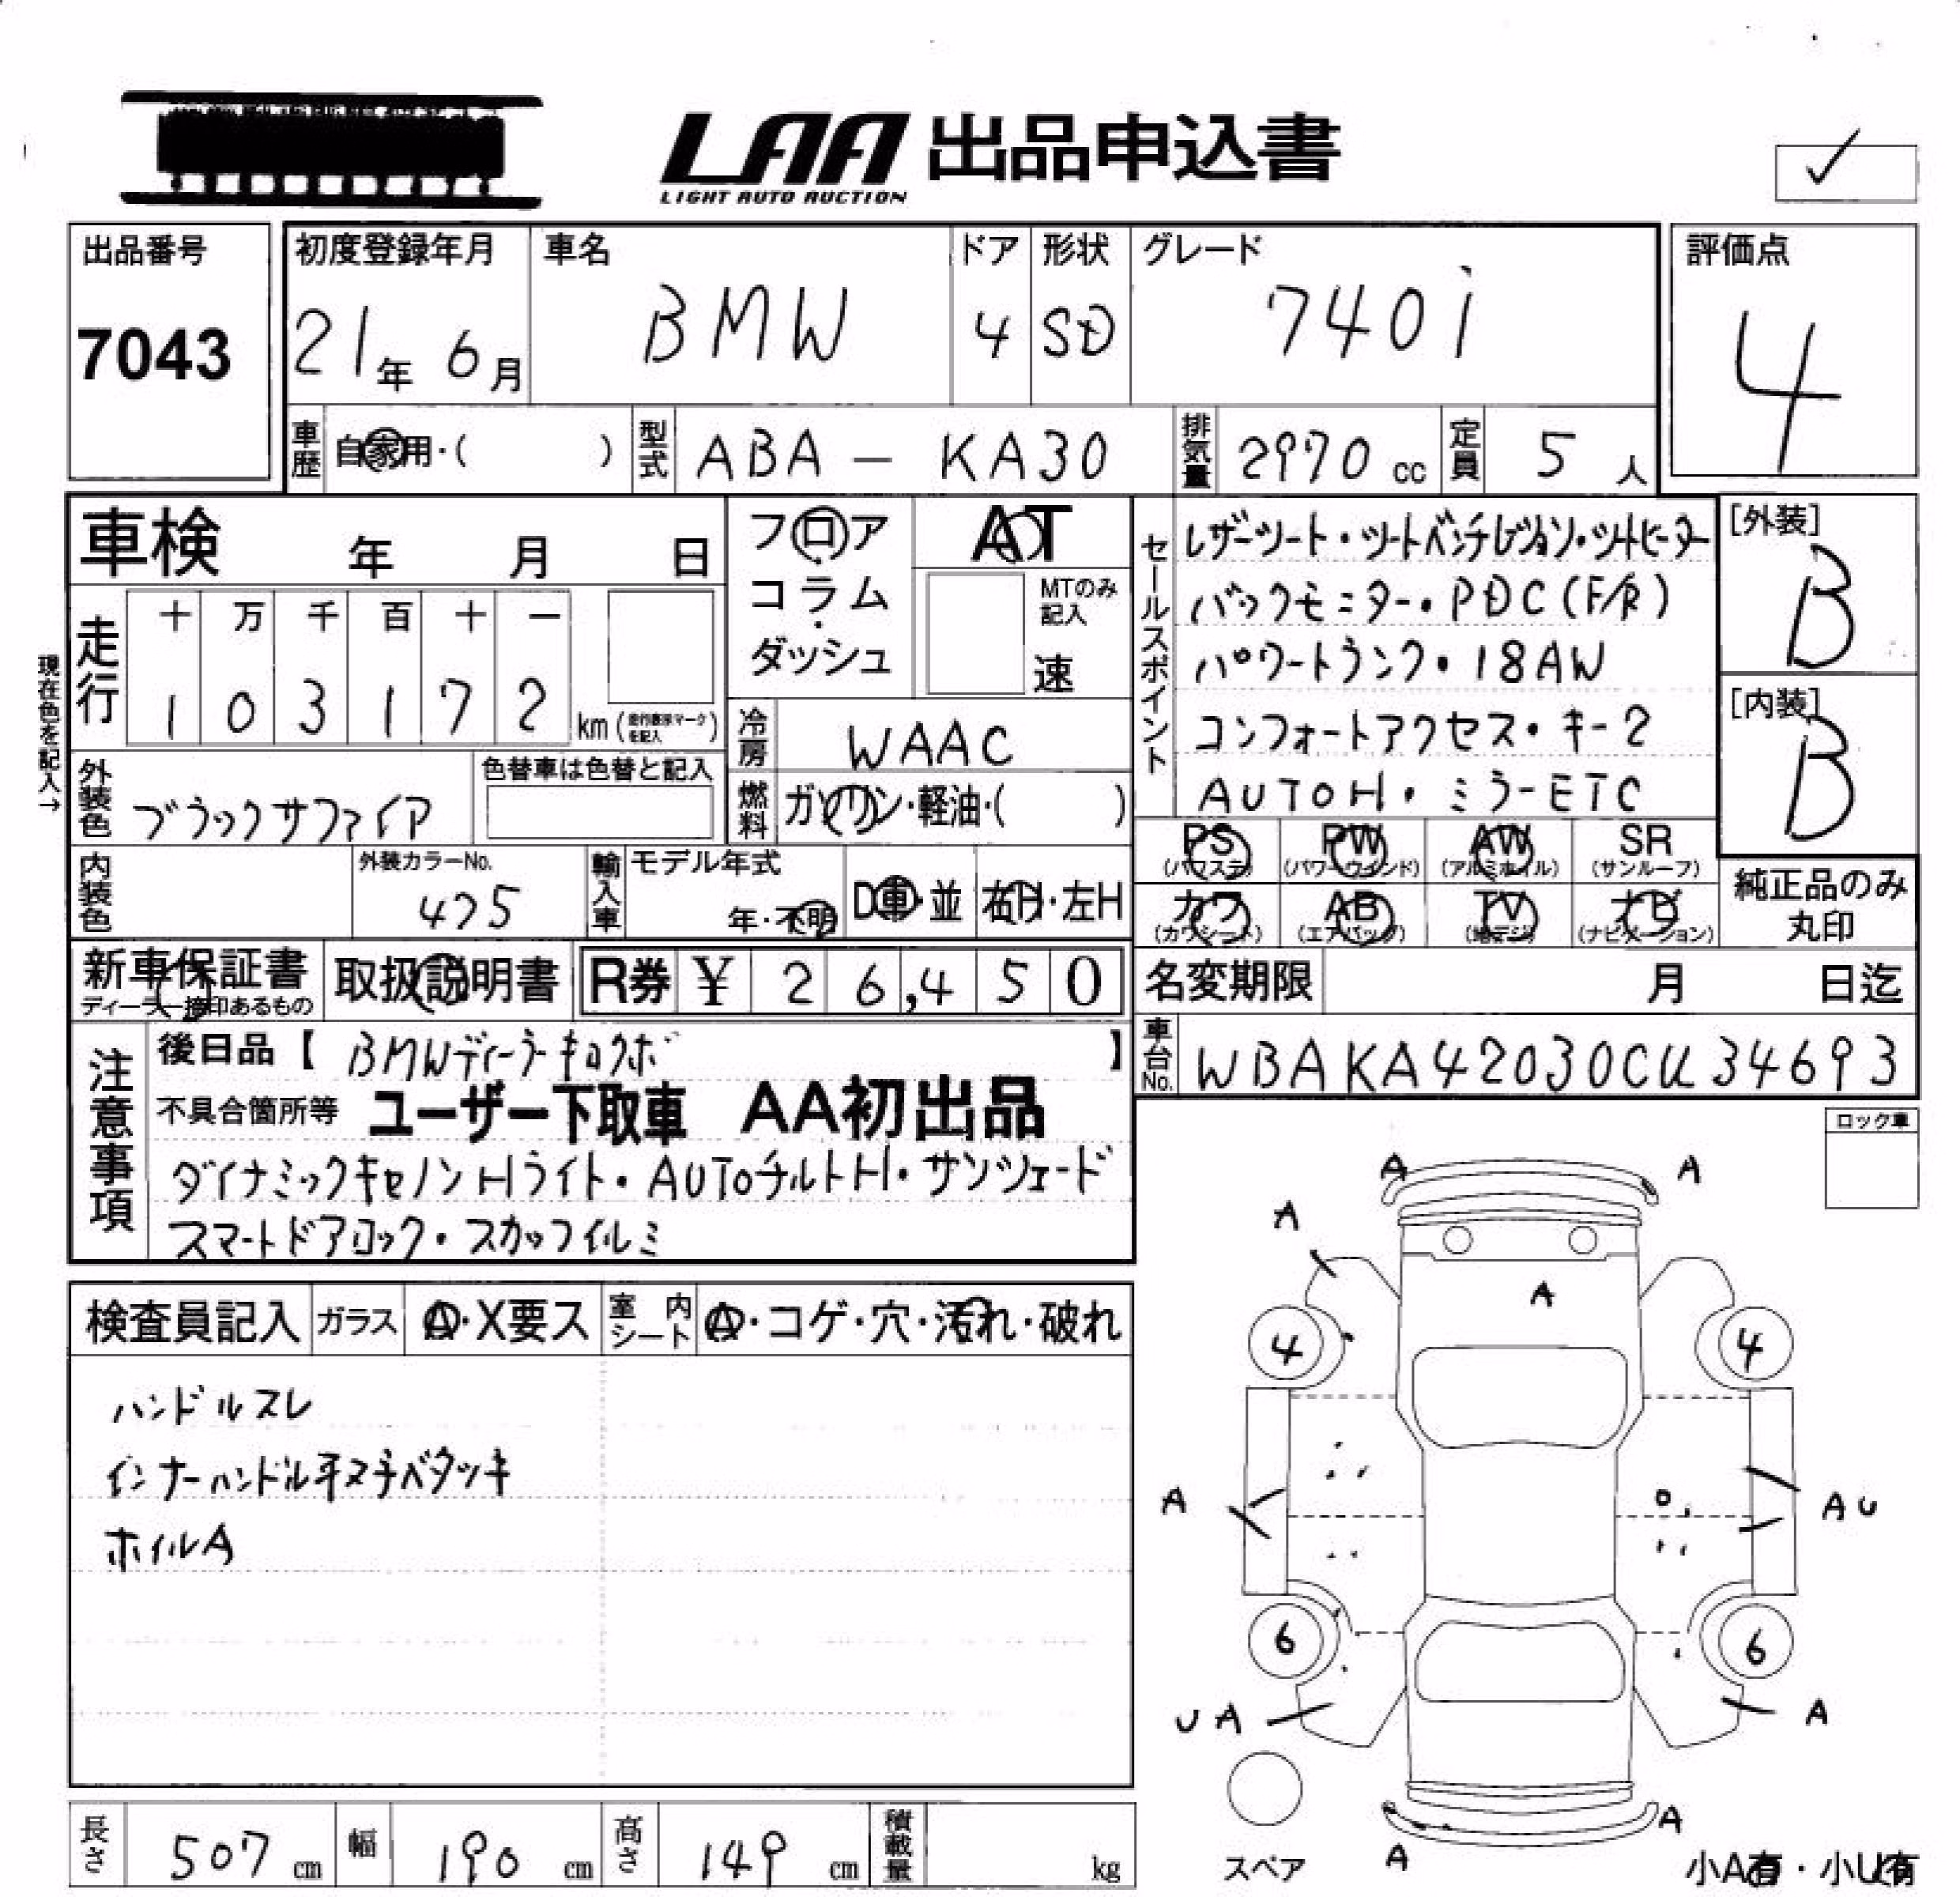 LAA 出品申込書
LIGHT AUTO AUCTION
✓
出品番号
7043
初度登録年月
21年 6月
車名
BMW
ドア
4
形状
SD
グレード
740i
評価点
4
車歴
自家用・( )
型式
ABA - KA30
排気量
2990 cc
定員
5 人
車検 年 月 日
フロア
コラム
ダッシュ
AT
MTのみ記入
速
セールスポイント
レザーシート・シートベンチレーション・シートヒーター
バックモニター・PDC(F/R)
パワートランク・18AW
コンフォートアクセス・キー2
AUTOH・ミラーETC
[外装]
B
[内装]
B
現在色を記入→
走行
十 万 千 百 十 一
1 0 3 1 7 2
km (走行表示マークを記入)
冷房
WAAC
燃料
ガソリン・軽油・( )
外装色
ブラックサファイア
色替車は色替と記入
内装色
外装カラーNo.
475
輸入車
モデル年式
年・不明
D車・並
右H・左H
PS
(パワステ)
PW
(パワーウインド)
AW
(アルミホイル)
SR
(サンルーフ)
カワ
(カワシート)
AB
(エアバッグ)
TV
(地デジ)
ナビ
(ナビゲーション)
純正品のみ
丸印
新車保証書
ディーラー捺印あるもの
取扱説明書
R券 ¥ 26,450
名変期限 月 日迄
車台No.
WBAKA42030CU34693
注意事項
後日品【 BMWディーラーキロクボ 】
不具合箇所等 ユーザー下取車 AA初出品
ダイナミックキセノンHライト・AUTOチルトH・サンシェード
スマートドアロック・スカッフイルミ
ロック車
検査員記入
ガラス
A・X要ス
室内シート
A・コゲ・穴・汚れ・破れ
ハンドルスレ
インナーハンドル
ベタツキ
ホイルA
A A
A
A
4 4
A
A U
6 6
U A
A
A
A
スペア
小A有・小U有
長さ
507 cm
幅
190 cm
高さ
149 cm
積載量
kg